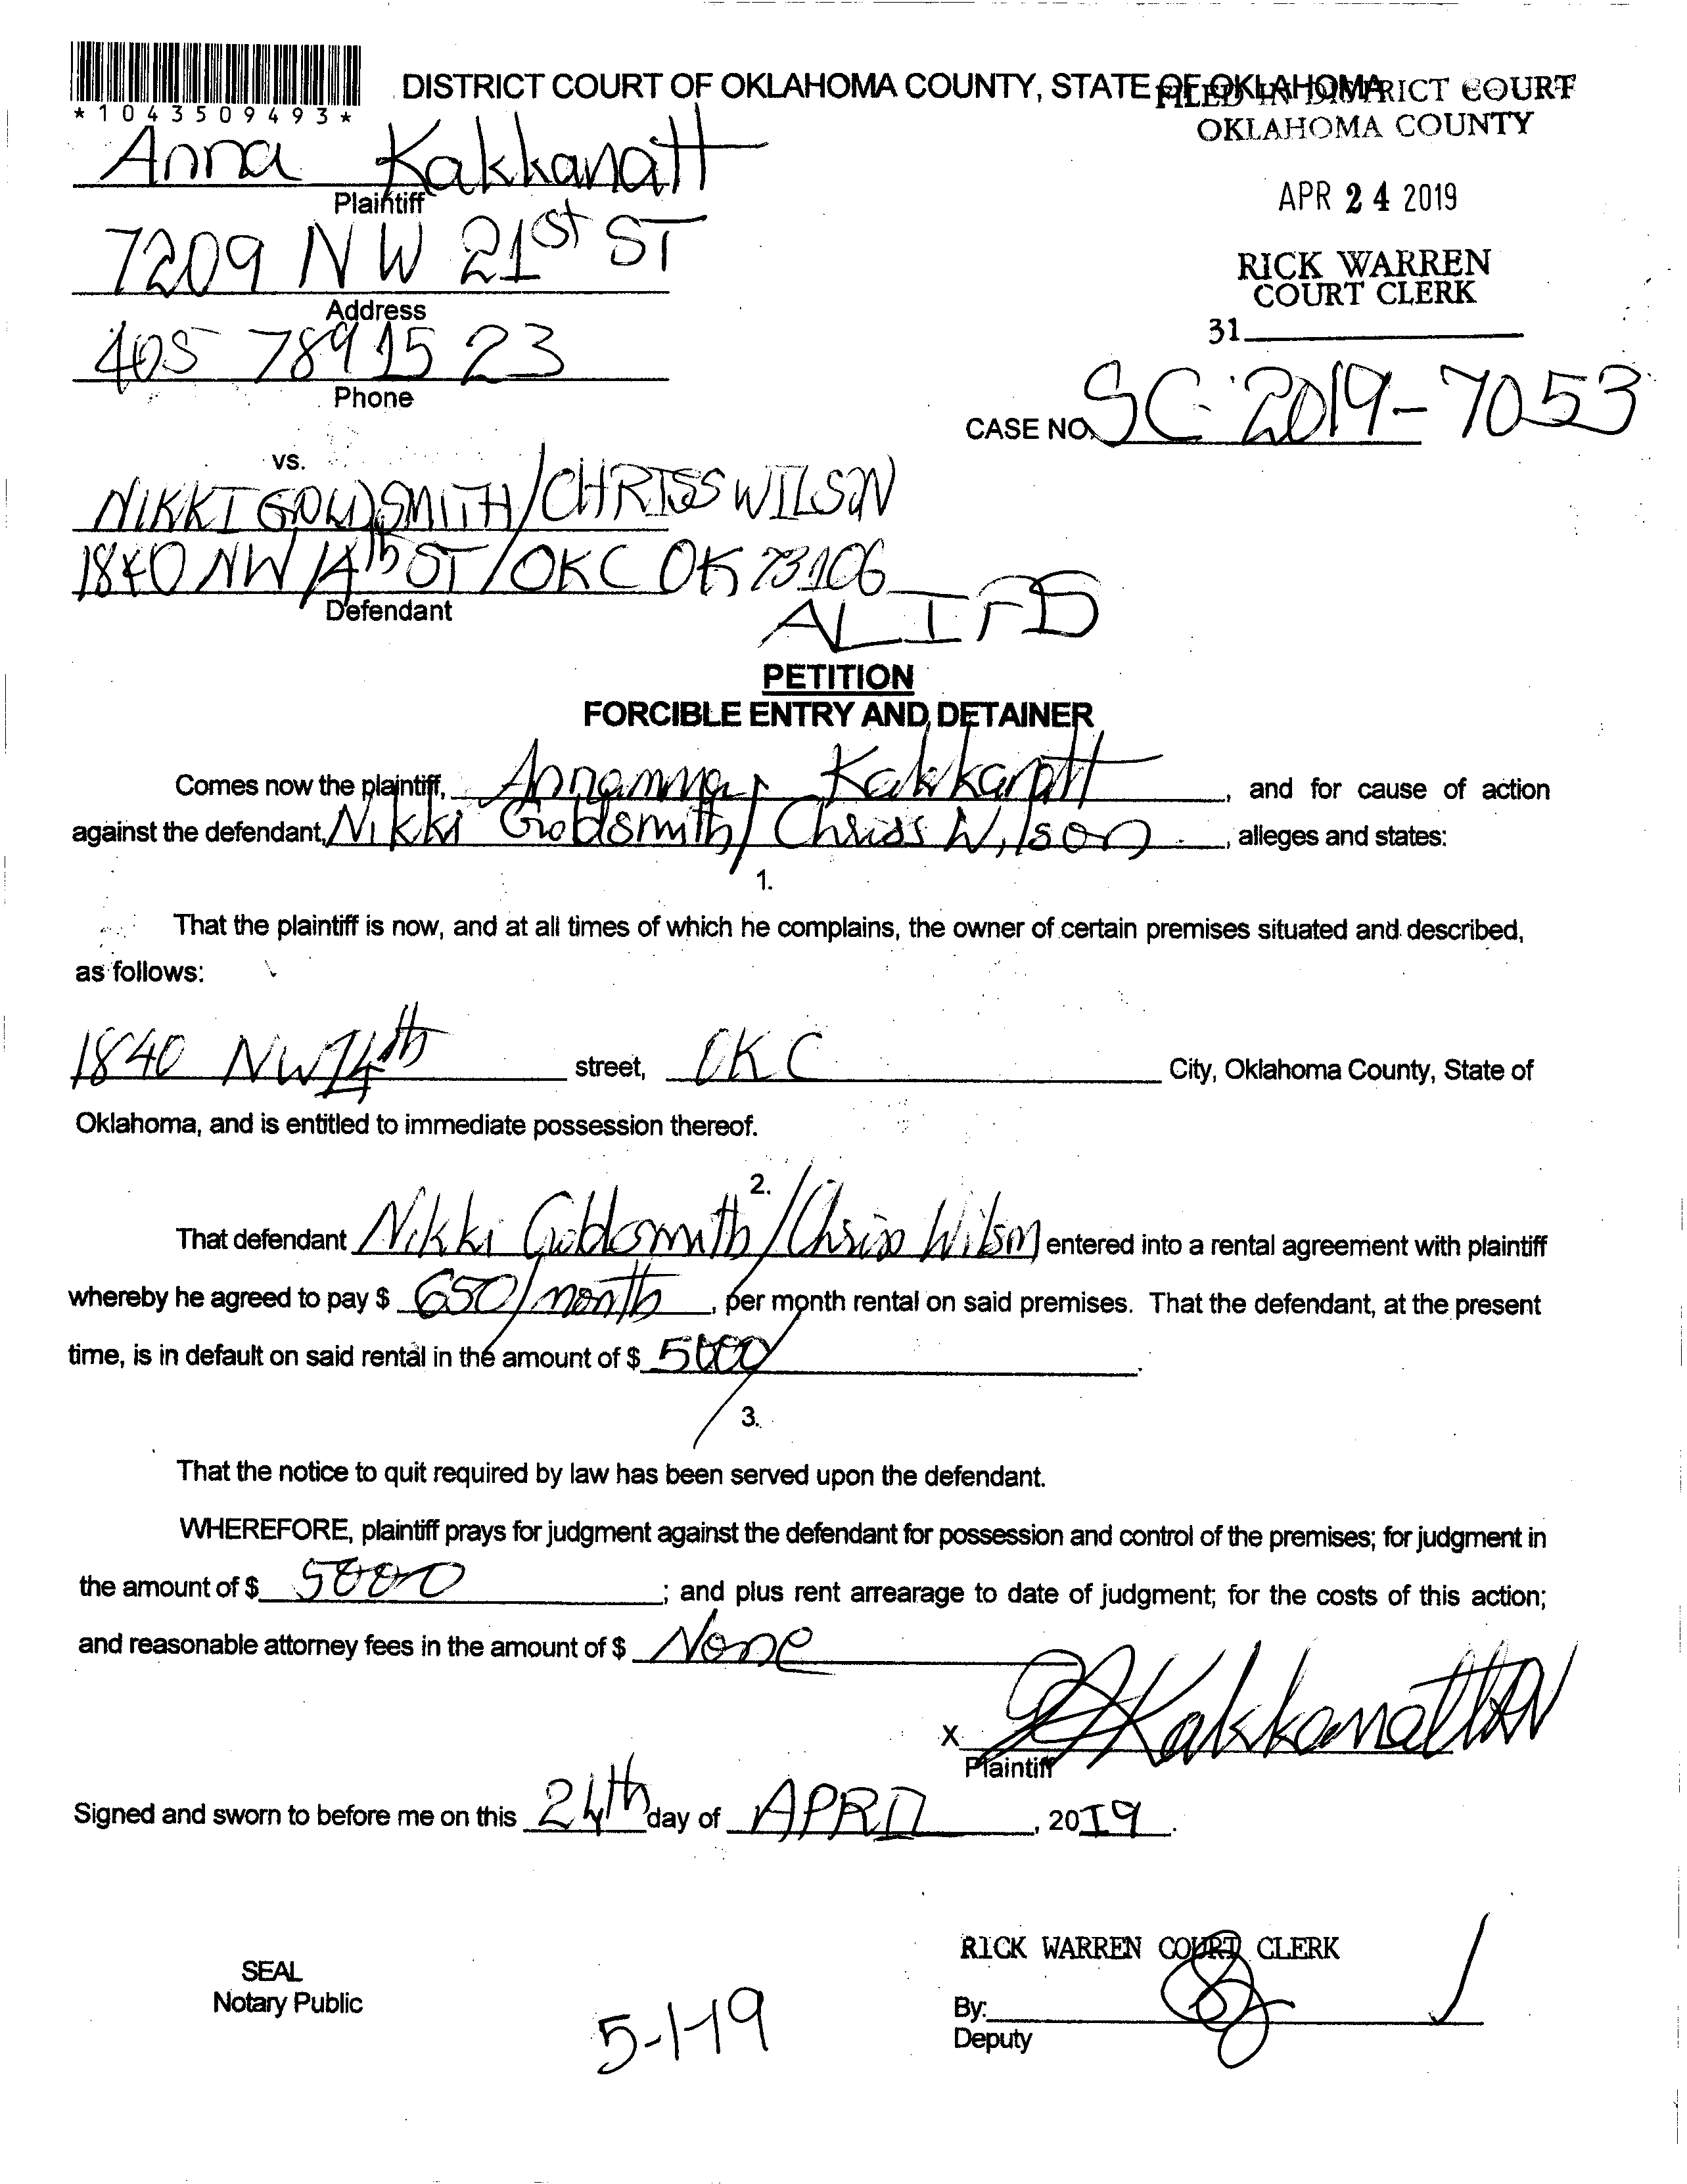 *1043509493*
DISTRICT COURT OF OKLAHOMA COUNTY, STATE OF OKLAHOMA
FILED IN DISTRICT COURT
OKLAHOMA COUNTY
APR 24 2019
RICK WARREN
COURT CLERK
31
Anna Kakkanatt
Plaintiff
7209 NW 21st ST
Address
405 789 1523
Phone
CASE NO. SC-2019-7053
vs.
NIKKI GOLDSMITH/CHRISS WILSON
1840 NW 14th ST/OKC OK 73106
Defendant
PETITION
FORCIBLE ENTRY AND DETAINER
Comes now the plaintiff, Annamma Kakkanatt, and for cause of action
against the defendant, Nikki Goldsmith/ Chriss Wilson, alleges and states:
1.
That the plaintiff is now, and at all times of which he complains, the owner of certain premises situated and described,
as follows:
1840 NW 14th street, OKC City, Oklahoma County, State of
Oklahoma, and is entitled to immediate possession thereof.
2.
That defendant Nikki Goldsmith/Chriss Wilson entered into a rental agreement with plaintiff
whereby he agreed to pay $ 650/month, per month rental on said premises. That the defendant, at the present
time, is in default on said rental in the amount of $ 5000/.
3.
That the notice to quit required by law has been served upon the defendant.
WHEREFORE, plaintiff prays for judgment against the defendant for possession and control of the premises; for judgment in
the amount of $ 5000; and plus rent arrearage to date of judgment; for the costs of this action;
and reasonable attorney fees in the amount of $ None
X Kakkanatt
Plaintiff
Signed and sworn to before me on this 24th day of APRIL, 2019.
SEAL
Notary Public
5-1-19
RICK WARREN COURT CLERK
By:
Deputy